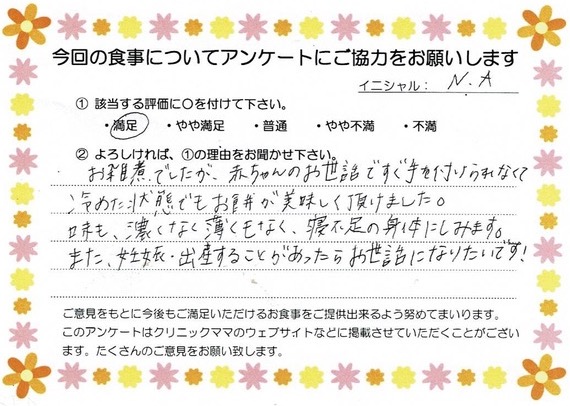 今回の食事についてアンケートにご協力をお願いします
イニシャル: N.A
① 該当する評価に○を付けて下さい。
・満足 ・やや満足 ・普通 ・やや不満 ・不満
② よろしければ、①の理由をお聞かせ下さい。
お雑煮でしたが、赤ちゃんのお世話ですぐ手を付けられなくて
冷めた状態でもお餅が美味しく頂けました。
味も、濃くなく薄くもなく、寝不足の身体にしみます。
また、妊娠・出産することがあったらお世話になりたいです!
ご意見をもとに今後もご満足いただけるお食事をご提供出来るよう努めてまいります。
このアンケートはクリニックママのウェブサイトなどに掲載させていただくことがござい
ます。たくさんのご意見をお願い致します。